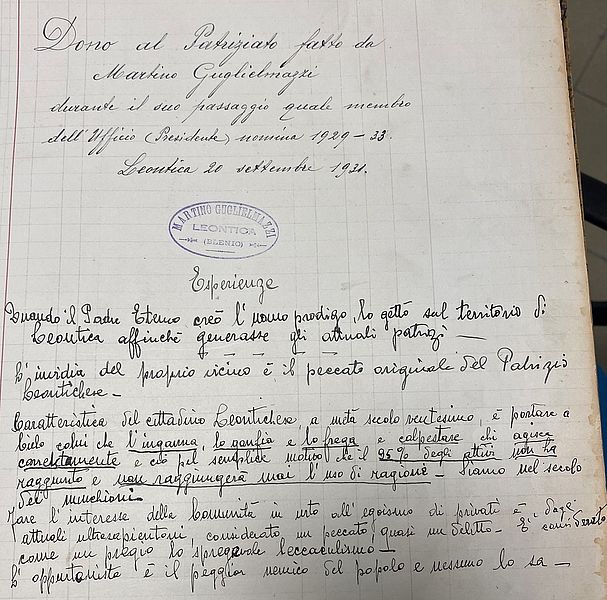 Dono al Patriziato fatto da
Martino Guglielmazzi
durante il suo passaggio quale membro
dell'Ufficio (Presidente) nomina 1929-33.
Leontica 20 settembre 1931.
MARTINO GUGLIELMAZZI
LEONTICA
(BLENIO)
Esperienze
Quando il Padre Eterno creò l'uomo prodigo, lo gettò sul territorio di
Leontica affinchè generasse gli attuali patrizi —
L'invidia del proprio vicino è il peccato originale del Patrizio
Leontichese —
Caratteristica del cittadino Leontichese, a metà secolo ventesimo, è portare a
Cielo colui che l'inganna, lo gonfia e lo frega e calpestare chi agisce
correttamente e ciò pel semplice motivo che il 95% degli attivi non ha
raggiunto e non raggiungerà mai l'uso di ragione — Siamo nel secolo
dei minchioni —
Fare l'interesse della Comunità in urto all'egoismo di privati è, dagli
attuali ultrasapientoni, considerato un peccato, quasi un delitto — È considerato
come un pregio lo spregevole leccaculismo —
L'opportunista è il peggior nemico del popolo e nessuno lo sa —